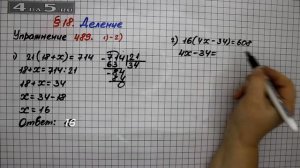 §18. Деление
Упражнение 489. 1)-2)
1) 21(18+x)=714
18+x=714:21
18+x=34
x=34-18
x=16
Ответ: 16
714 21
63 34
84
84
0
2) 16(4x-34)=608
4x-34=